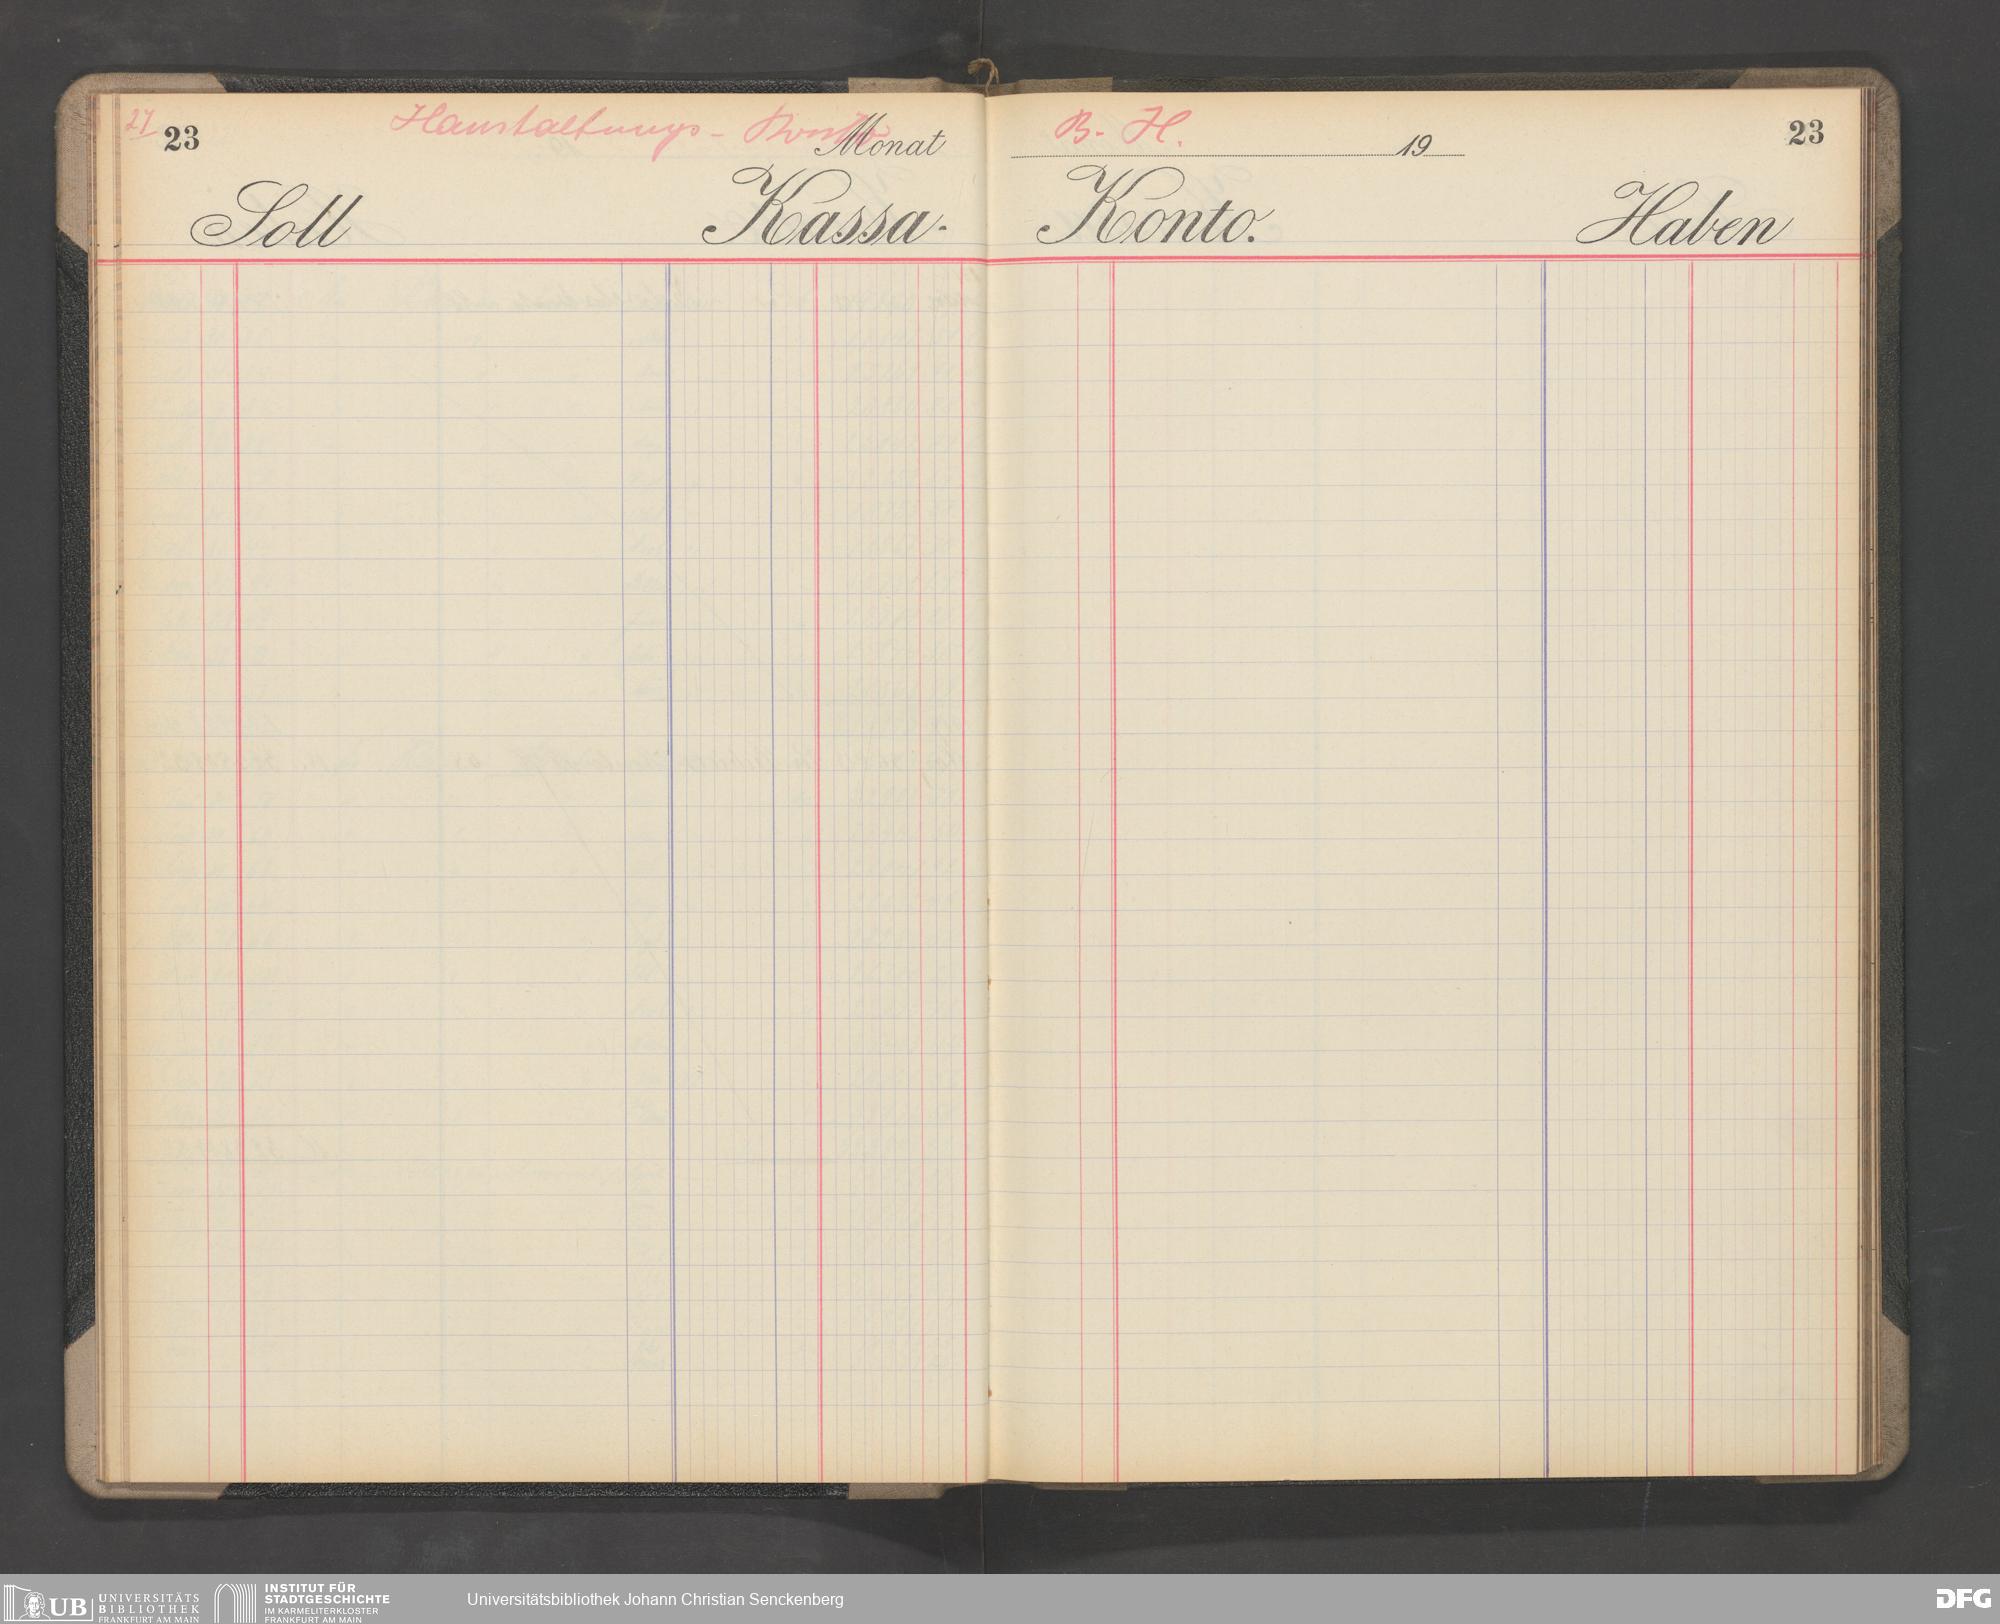 27
23
Haushaltungs-Konto
Monat
Soll
Kassa-
B. H.
19
23
Konto.
Haben
UB UNIVERSITÄTS
BIBLIOTHEK
FRANKFURT AM MAIN
INSTITUT FÜR
STADTGESCHICHTE
IM KARMELITERKLOSTER
FRANKFURT AM MAIN
Universitätsbibliothek Johann Christian Senckenberg
DFG